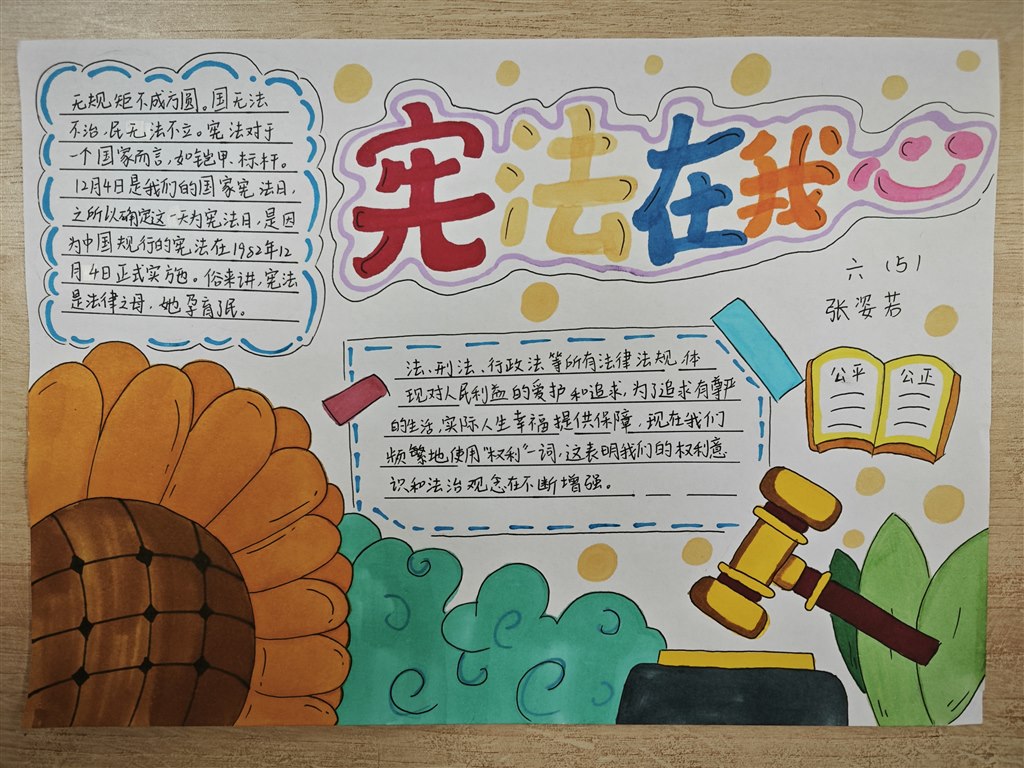 宪法在我
六（5）
张姿若
无规矩不成方圆。国无法
不治，民无法不立。宪法对于
一个国家而言，如铠甲、标杆。
12月4日是我们的国家宪法日，
之所以确定这一天为宪法日，是因
为中国规行的宪法在1982年12
月4日正式实施。俗来讲，宪法
是法律之母，她孕育了民。
法、刑法、行政法等所有法律法规，体
现对人民利益的爱护和追求，为了追求有尊严
的生活，实际人生幸福提供保障，现在我们
频繁地使用"权利"一词，这表明我们的权利意
识和法治观念在不断增强。
公平
公正